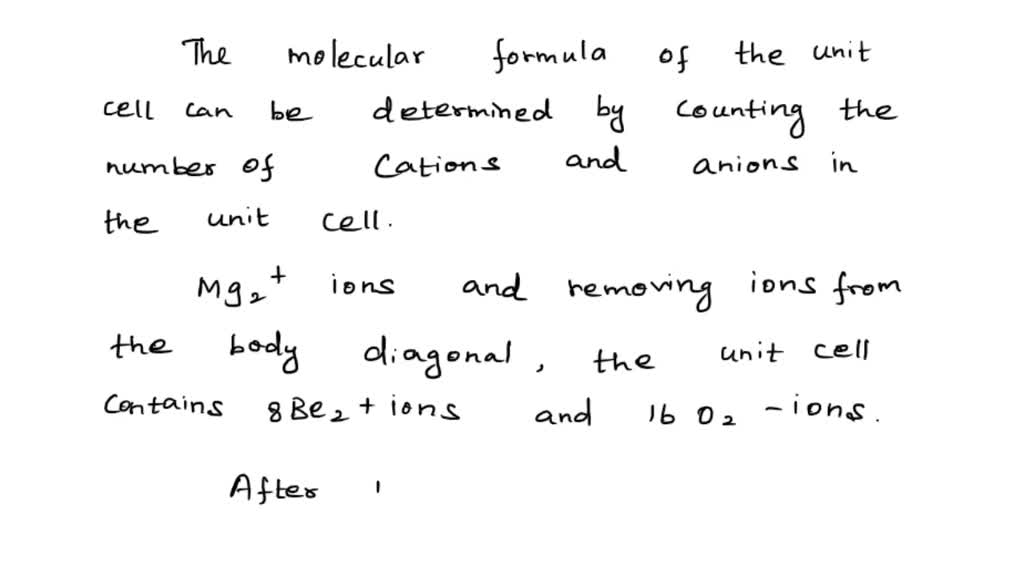 The molecular formula of the unit
cell can be determined by counting the
number of Cations and anions in
the unit cell.
Mg₂⁺ ions and removing ions from
the body diagonal, the unit cell
Contains 8Be₂+ ions and 16 O₂ -ions.
After I